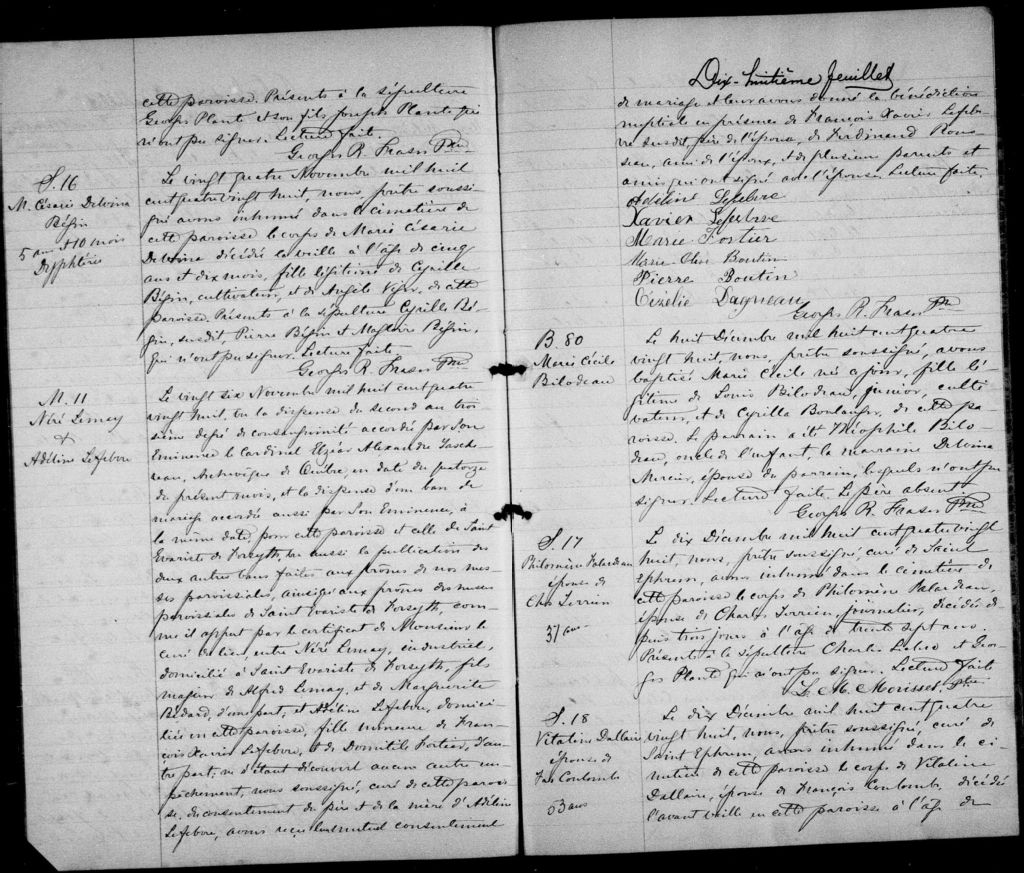 cette paroisse. Présents à la sépulture
Georges Plante et son fils Joseph Plante qui
n'ont pu signer. Lecture faite.
Georges R. Fraser Ptre
S. 16
M. Césarie Delvina
Bégin
5 ans et 10 mois
Dypphtérie
Le vingt quatre Novembre mil huit
cent quatre vingt huit, nous, prêtre soussi-
gné avons inhumé dans le cimetière de
cette paroisse le corps de Marie Césarie
Delvina décédée la veille à l'âge de cinq
ans et dix mois, fille légitime de Cyrille
Bégin, cultivateur, et de Angèle, de cette
paroisse. Présents à la sépulture Cyrille Bé-
gin, susdit, Pierre Bégin et Magloire Bégin,
qui n'ont pu signer. Lecture faite.
Georges R. Fraser Ptre
M. 11
Néré Lemay
&
Adéline Lefebvre
Le vingt six Novembre mil huit cent quatre
vingt huit, vu la dispense du second au troi-
sième degré de consanguinité accordée par Son
Eminence le Cardinal Elzéar Alexandre Tasch-
ereau, Archevêque de Québec, en date du quatorze
du présent mois, et la dispense d'un ban de
mariage accordée aussi par Son Eminence, à
la même date, pour cette paroisse et celle de Saint
Evariste de Forsyth, vu aussi la publication des
deux autres bans faites aux prônes de nos mes-
ses paroissiales, ainsi qu'aux prônes des messes
paroissiales de Saint Evariste de Forsyth, com-
me il appert par le certificat de Monsieur le
curé du lieu, entre Néré Lemay, industriel,
domicilié à Saint Evariste de Forsyth, fils
majeur de Alfred Lemay, et de Marguerite
Bédard, d'une part; et Adéline Lefebvre, domici-
liée en cette paroisse, fille mineure de Fran-
çois Xavier Lefebvre, et de Domitile Fortier, d'au-
tre part; ne s'étant découvert aucun autre em-
pêchement, nous soussigné, curé de cette parois-
se, du consentement du père et de la mère d'Adéline
Lefebvre, avons reçu leur mutuel consentement
Dix-huitième feuillet
de mariage et leur avons donné la bénédiction
nuptiale en présence de François Xavier Lefeb-
vre susdit, père de l'épouse, de Ferdinand Rous-
seau, ami de l'époux, et de plusieurs parents et
amis qui ont signé avec l'épouse. Lecture faite.
Adéline Lefebvre
Xavier Lefebvre
Marie Fortier
Marie Boutin
Pierre Boutin
Cézélie Dagneau
Georges R. Fraser Ptr
B. 80
Marie Cécile
Bilodeau
Le huit Décembre mil huit cent quatre
vingt huit, nous, prêtre soussigné, avons
baptisé Marie Cécile née ce jour, fille lé-
gitime de Louis Bilodeau, junior, culti-
vateur, et de Cyrilla Boulanger, de cette pa-
roisse. Le parrain a été Théophile Bilo-
deau, oncle de l'enfant, la marraine Delvina
Mercier, épouse du parrain, lesquels n'ont pu
signer. Lecture faite. Le père absent.
Georges R. Fraser Ptre
S. 17
Philomène Palardeau
épouse de
Chs Terrien
37 ans
Le dix Décembre mil huit cent quatre vingt
huit, nous, prêtre soussigné, curé de Saint
Ephrem, avons inhumé dans le cimetière de
cette paroisse le corps de Philomène Palardeau,
épouse de Charles Terrien, journalier, décédée de-
puis trois jours à l'âge de trente sept ans.
Présents à la sépulture Charles et Geor-
ges Plante qui n'ont pu signer. Lecture faite
L. M. Morisset, Ptre
S. 18
Vitaline Dallaire
épouse de
Frs Coulombe
53 ans
Le dix Décembre mil huit cent quatre
vingt huit, nous, prêtre soussigné, curé de
Saint Ephrem, avons inhumé dans le ci-
metière de cette paroisse le corps de Vitaline
Dallaire, épouse de François Coulombe, décédée
l'avant veille en cette paroisse à l'âge de